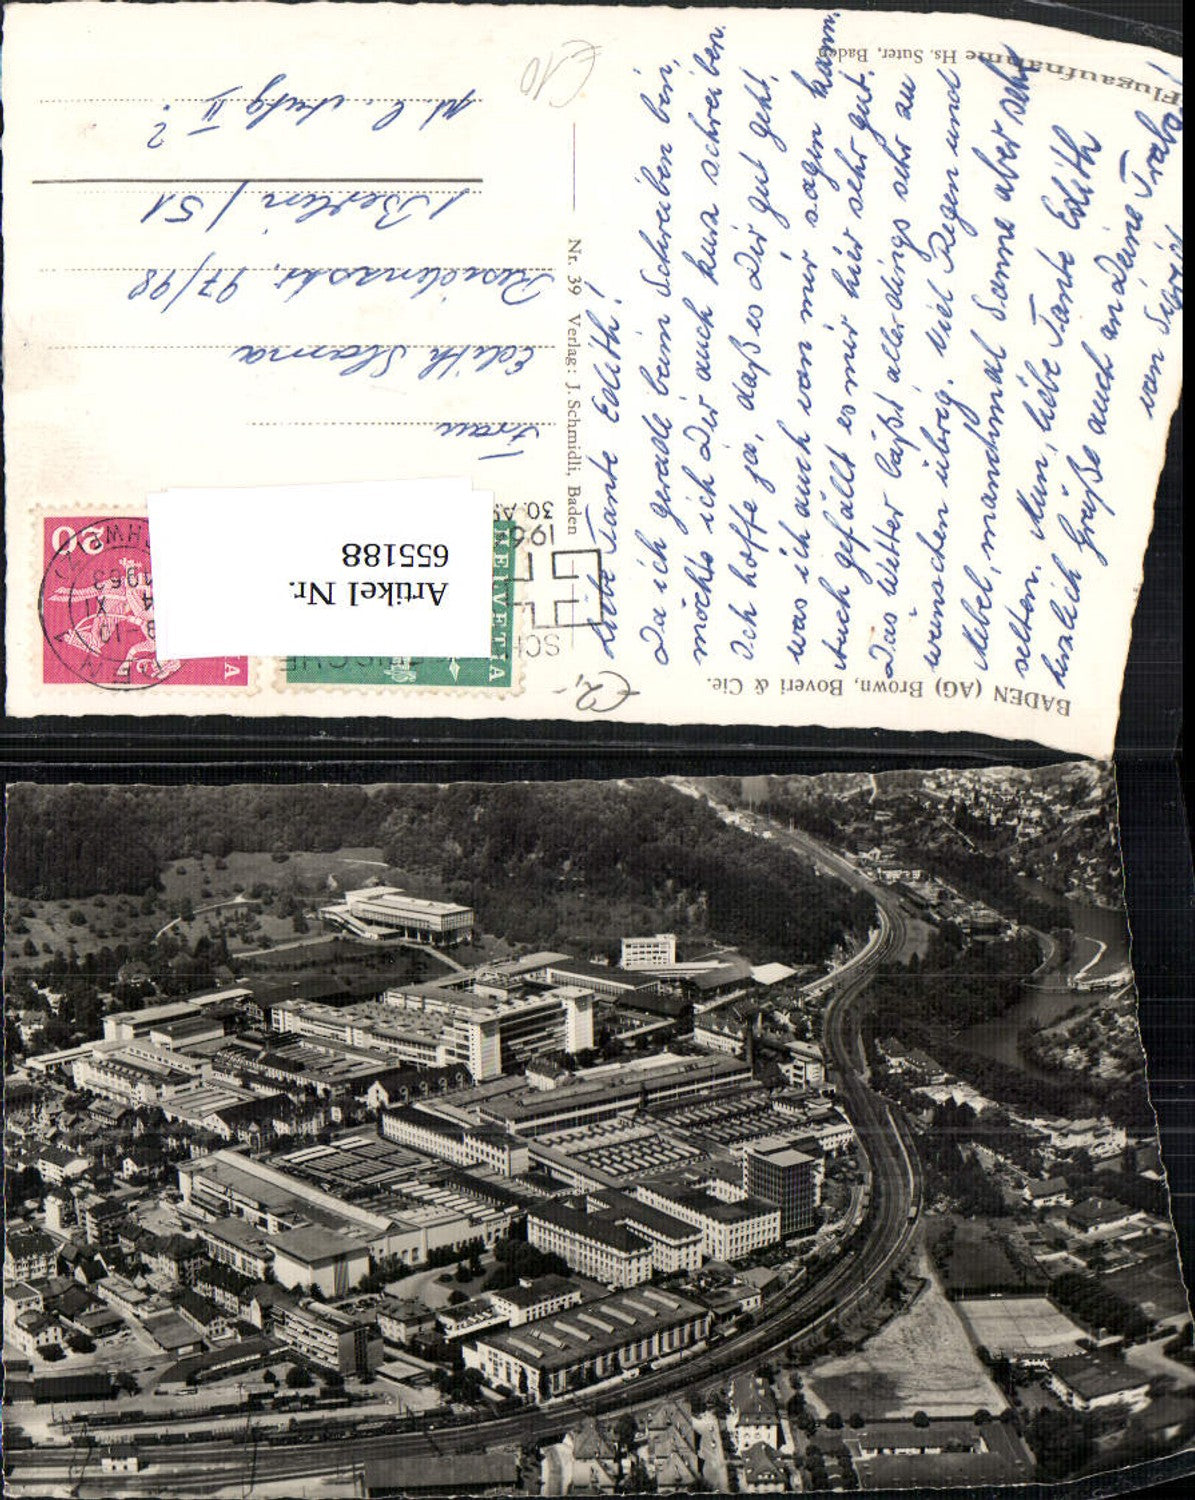 BADEN (AG) Brown, Boveri & Cie.
Flugaufnahme Hs. Suter, Baden
Nr. 39 Verlag: J. Schmidli, Baden
Liebe Tante Edith!
Da ich gerade beim Schreiben bin,
möchte ich Dir auch kurz schreiben.
Ich hoffe ja, daß es Dir gut geht,
was ich auch von mir sagen kann.
Auch gefällt es mir hier sehr gut.
Das Wetter läßt allerdings sehr zu
wünschen übrig. Viel Regen und
Nebel, manchmal Sonne aber sehr
selten. Nun, liebe Tante Edith
herzlich Grüße auch an Deine
von Sigrid
HELVETIA
20
1963
XI
196
30. A
SC
Artikel Nr.
655188
Frau
Edith Slama
Residenzstr. 97/98
1 Berlin / 51
II ?
€10
€2,-